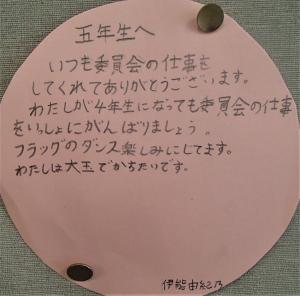 五年生へ
いつも委員会の仕事を
してくれてありがとうございます。
わたしが4年生になっても委員会の仕事
をいっしょにがんばりましょう。
フラッグのダンス楽しみにしてます。
わたしは大玉でかちたいです。
伊能由紀乃